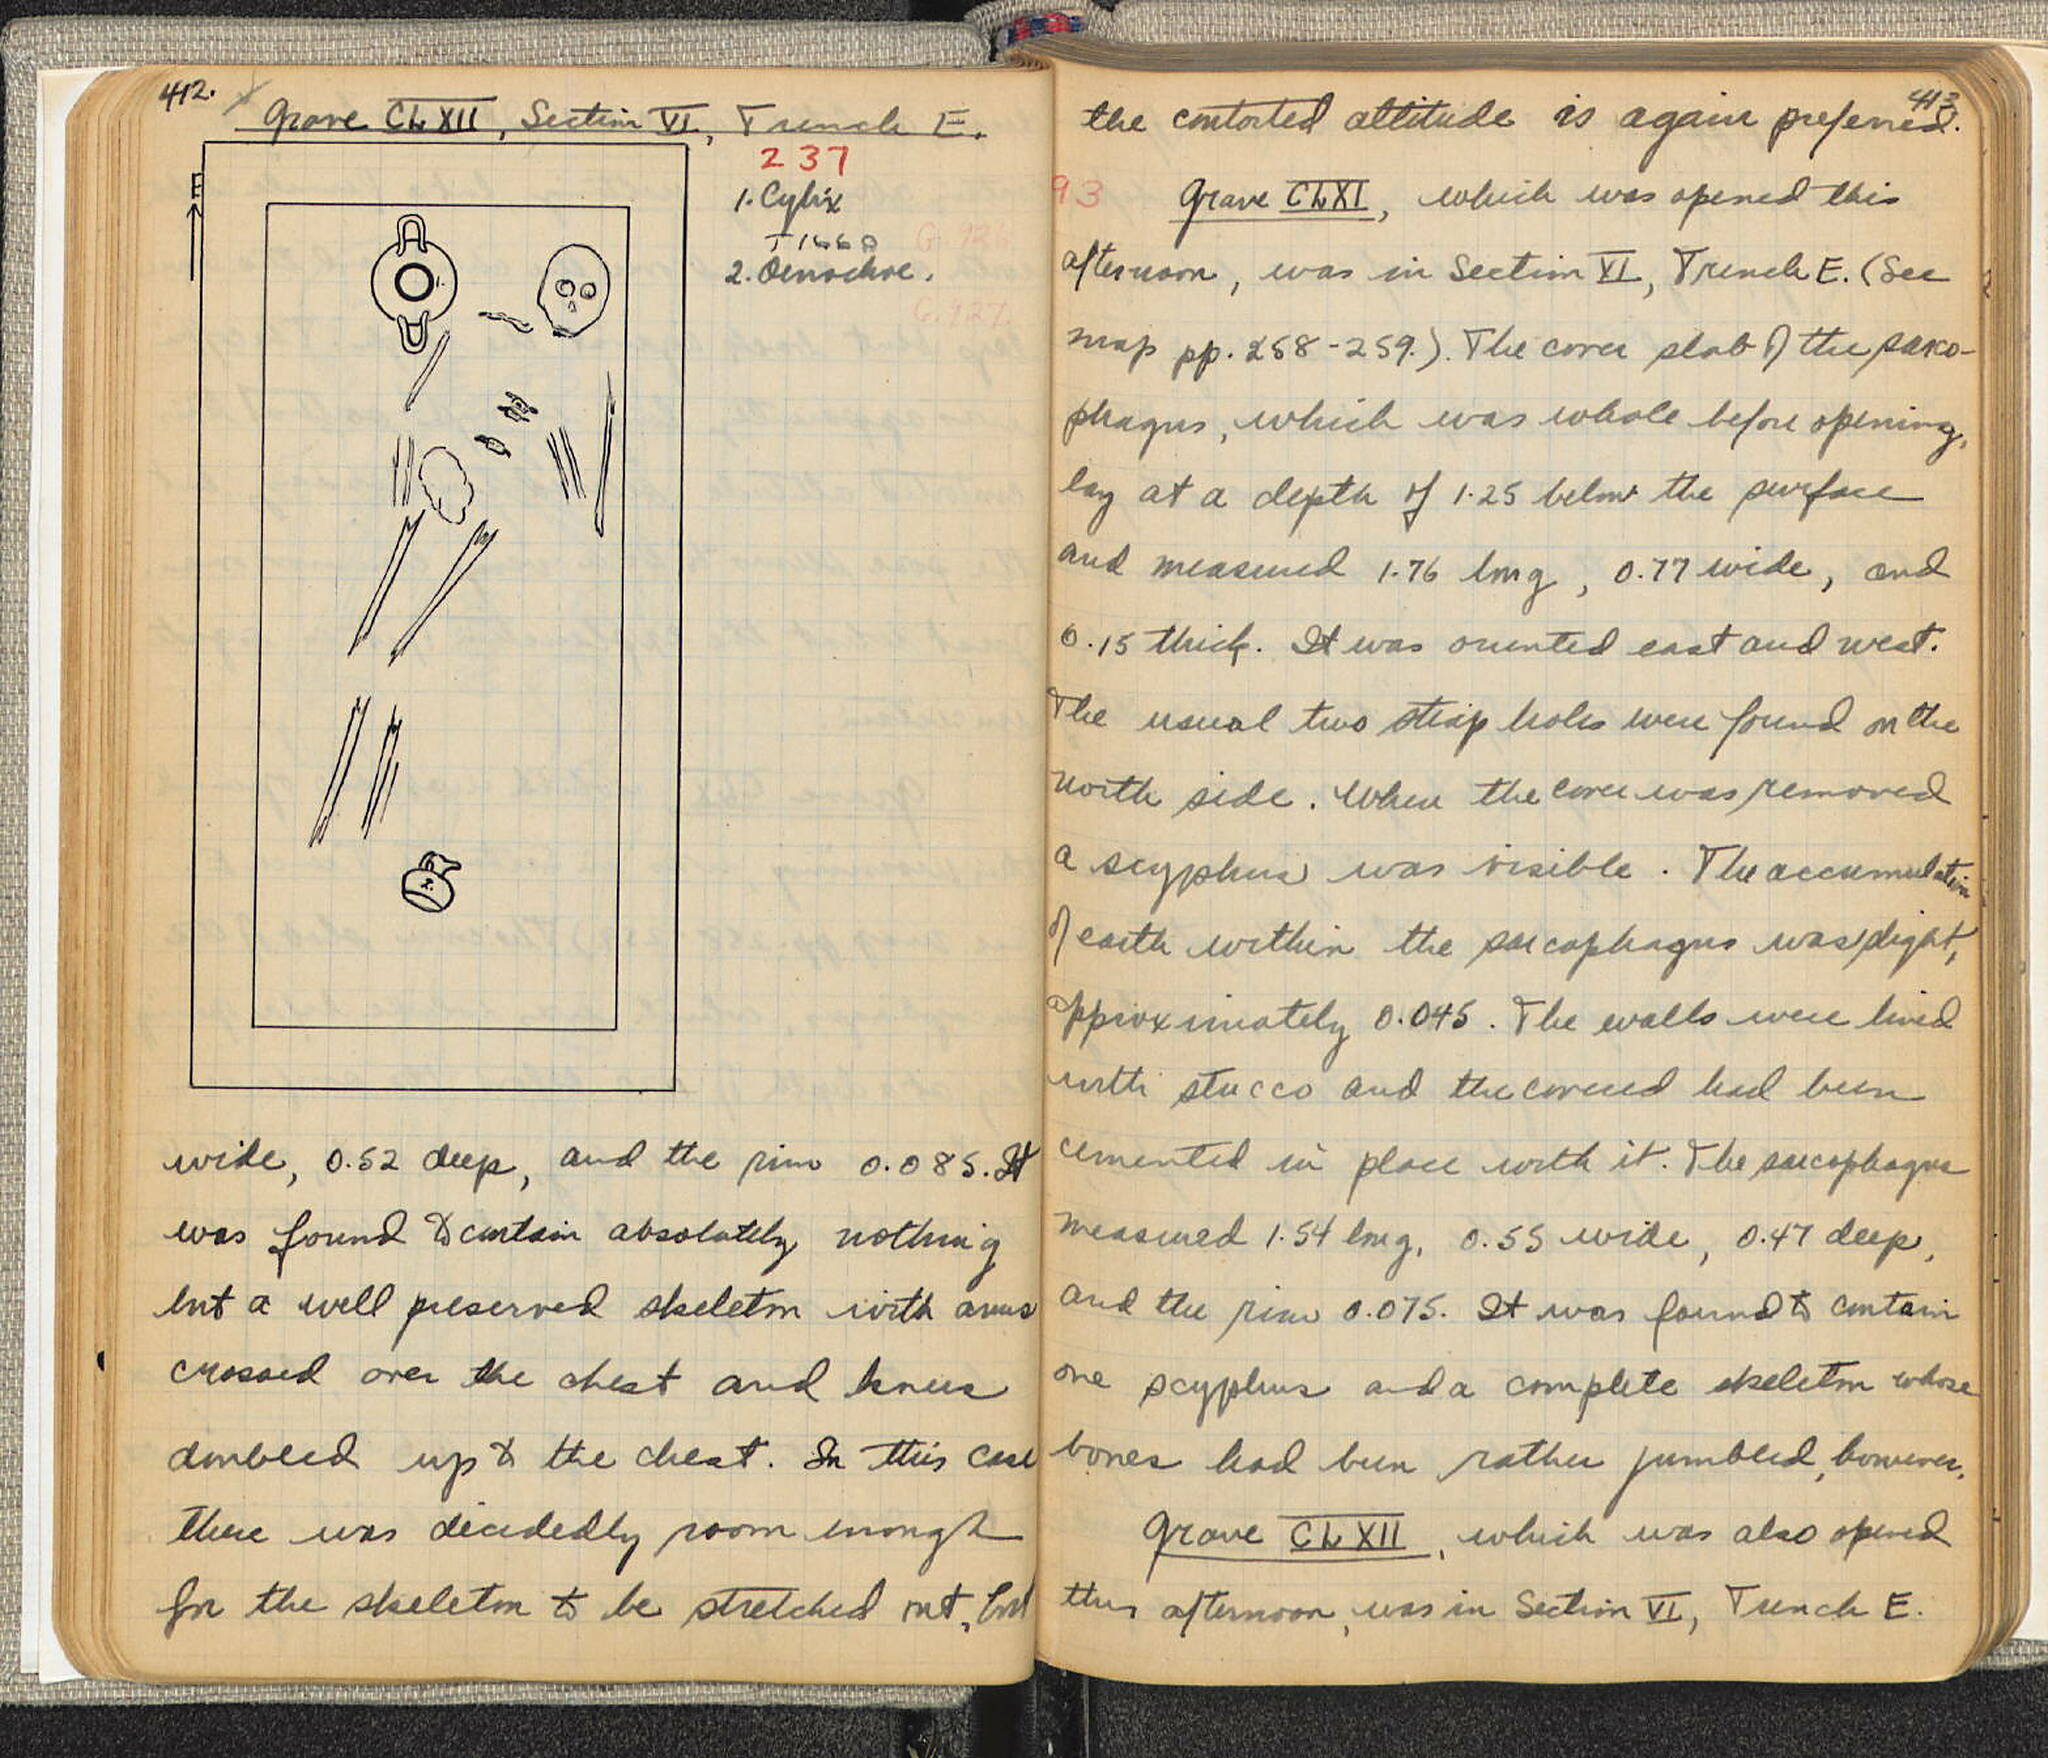 412.
Grave CLXII, Section VI, Trench E.
E
237
1. Cylix
T1660
G.926
2. Oenochoe.
G.927.
2.
wide, 0.52 deep, and the rim 0.085. It
was found to contain absolutely nothing
but a well preserved skeleton with arms
crossed over the chest and knees
doubled up to the chest. In this case
there was decidedly room enough
for the skeleton to be stretched out, but
413
the contorted attitude is again preferred.
93
Grave CLXI, which was opened this
afternoon, was in Section VI, Trench E. (See
map pp. 258-259.). The cover slab of the sarco-
phagus, which was whole before opening,
lay at a depth of 1.25 below the surface
and measured 1.76 long, 0.77 wide, and
0.15 thick. It was oriented east and west.
The usual two strap holes were found on the
north side. When the cover was removed
a scyphus was visible. The accumulation
of earth within the sarcophagus was slight,
approximately 0.045. The walls were lined
with stucco and the covered had been
cemented in place with it. The sarcophagus
measured 1.54 long, 0.55 wide, 0.47 deep,
and the rim 0.075. It was found to contain
one scyphus and a complete skeleton whose
bones had been rather jumbled, however.
Grave CLXII, which was also opened
this afternoon, was in Section VI, Trench E.